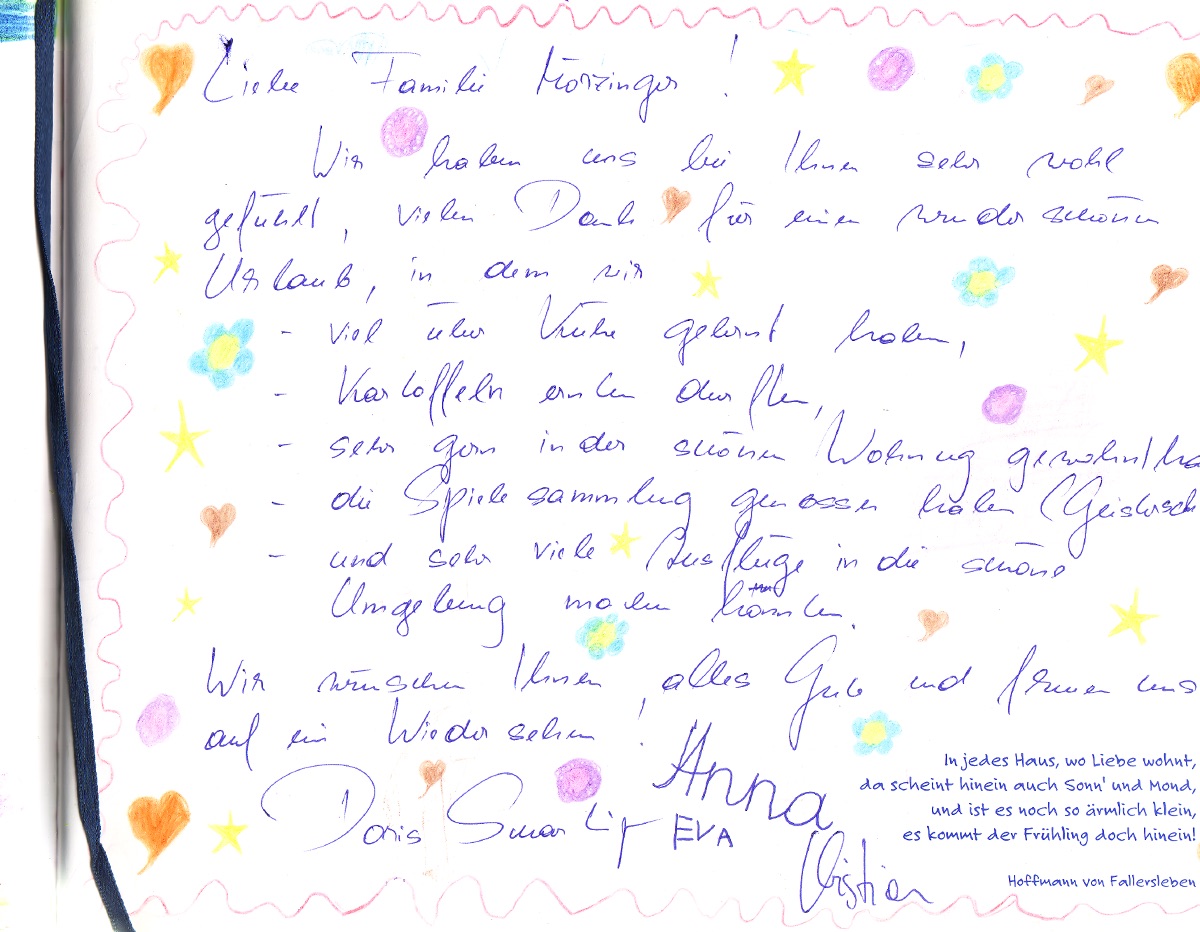 Liebe Familie Morzinger!
Wir haben uns bei Ihnen sehr wohl
gefühlt, vielen Dank für einen wunderschönen
Urlaub, in dem wir
- viel über Kühe gelernt haben,
- Kartoffeln ernten durften,
- sehr gern in der schönen Wohnung gewohnt ha
- die Spielesammlung genossen haben (Geistersch
- und sehr viele Ausflüge in die schöne
Umgebung machen konnten.
Wir wünschen Ihnen alles Gute und freuen uns
auf ein Wiedersehen!
Anna
Doris
EVA
Christian
In jedes Haus, wo Liebe wohnt,
da scheint hinein auch Sonn' und Mond,
und ist es noch so ärmlich klein,
es kommt der Frühling doch hinein!
Hoffmann von Fallersleben